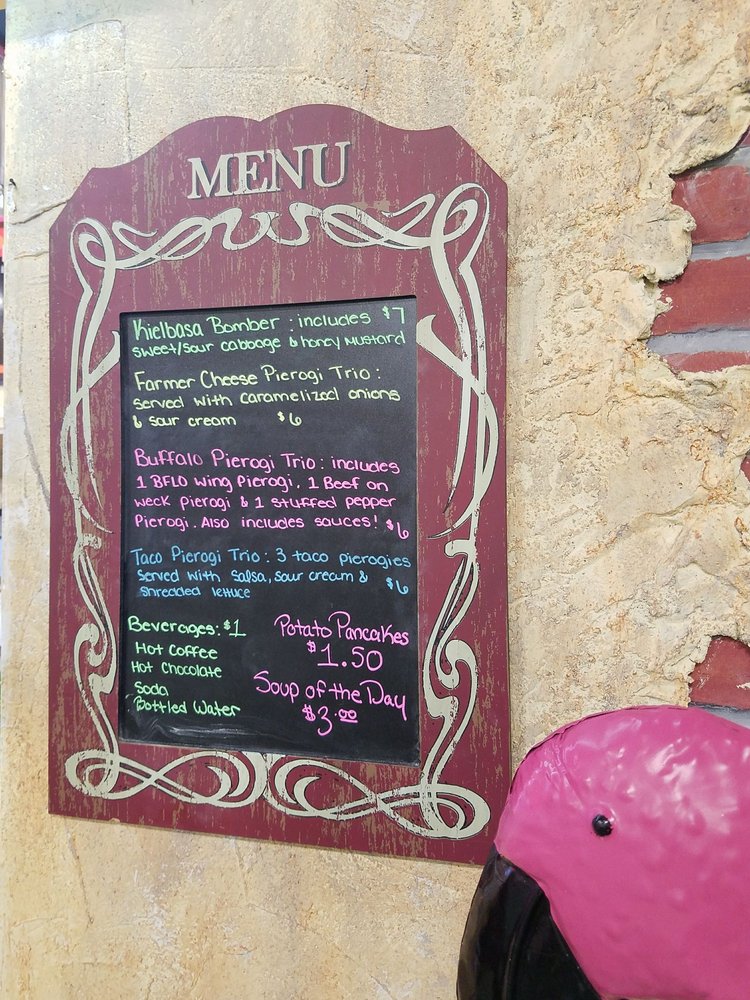 MENU
Kielbasa Bomber : includes $7
sweet/sour cabbage & honey mustard
Farmer Cheese Pierogi Trio :
served with caramelized onions
& sour cream $6
Buffalo Pierogi Trio : includes
1 BFLO wing Pierogi, 1 Beef on
weck pierogi & 1 stuffed pepper
Pierogi. Also includes sauces! $6
Taco Pierogi Trio : 3 taco pierogies
served with salsa, sour cream & $6
shredded lettuce
Beverages: $1
Hot Coffee
Hot Chocolate
Soda
Bottled Water
Potato Pancakes
$1.50
Soup of the Day
$3.00